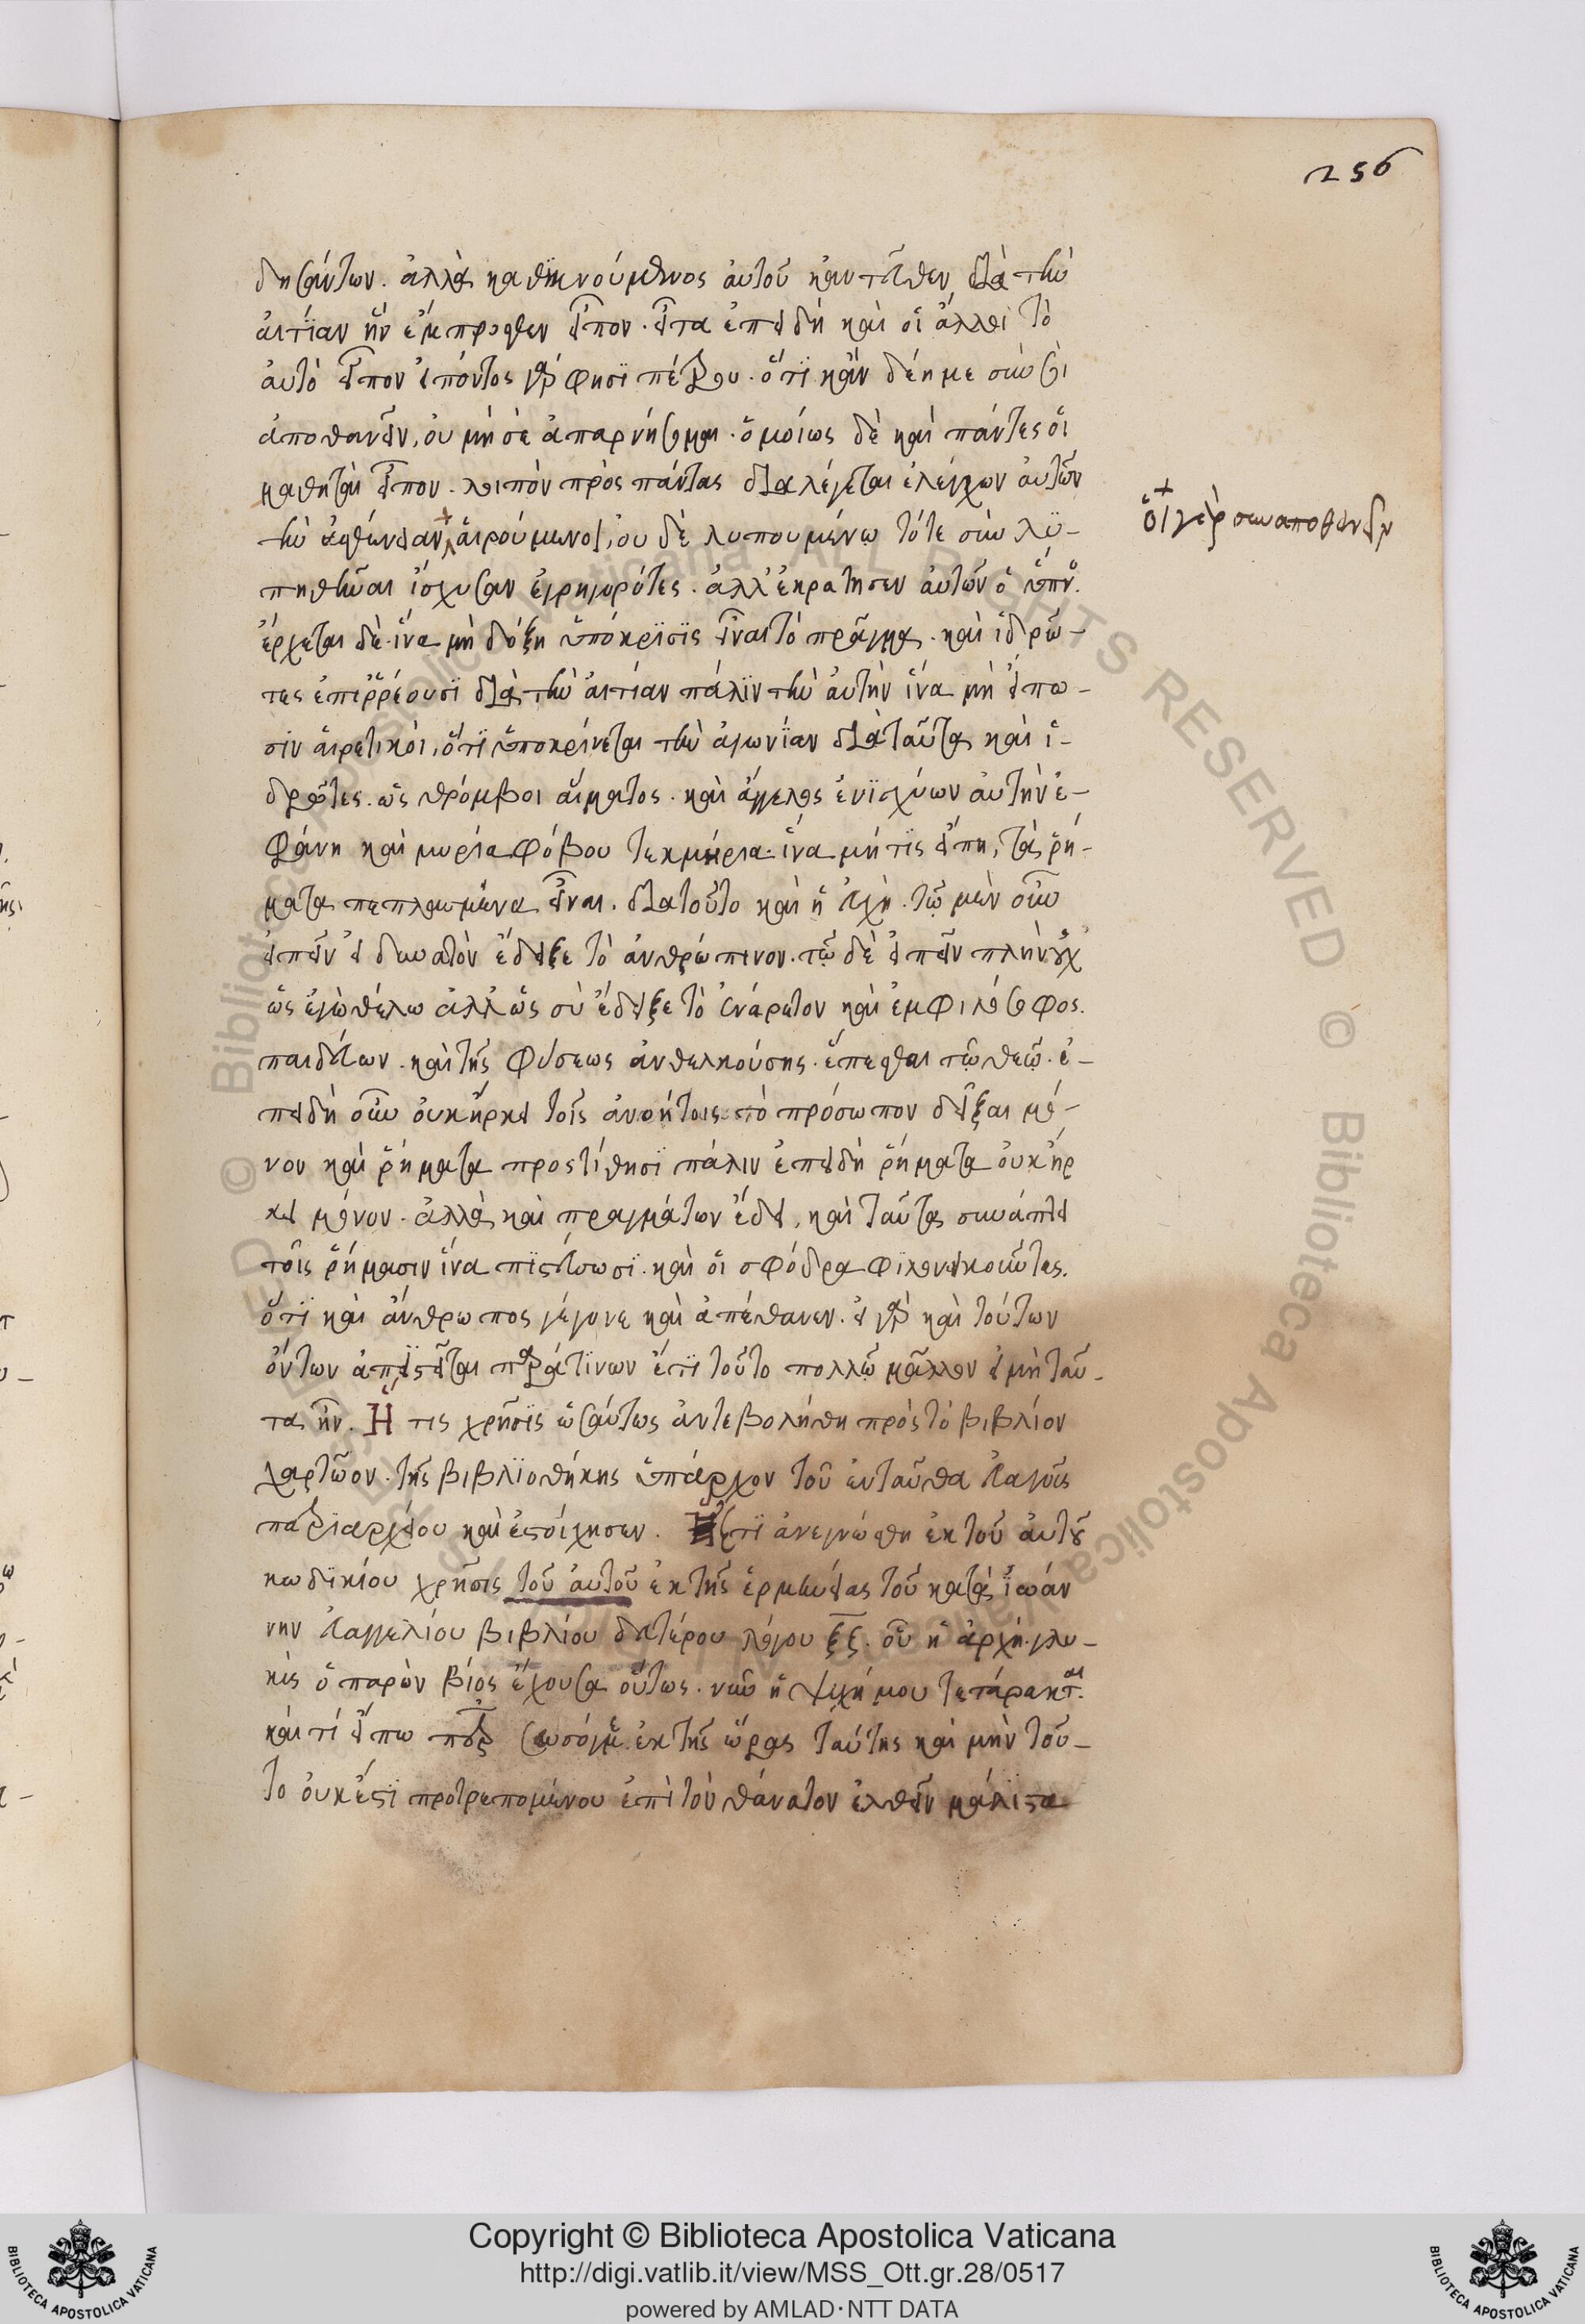 256
δησάντων. ἀλλὰ καθικνούμενος αὐτοῦ κἀντεῦθεν διὰ τὴν
αἰτίαν ἣν ἔμπροσθεν εἶπον. εἶτα ἐπειδὴ καὶ οἱ ἄλλοι τὸ
αὐτὸ εἶπον εἰπόντος γάρ φησι πέτρου. ὅτι κἂν δέη με σὺν σοὶ
ἀποθανεῖν, οὐ μή σε ἀπαρνήσομαι. ὁμοίως δὲ καὶ πάντες οἱ
μαθηταὶ εἶπον. λοιπὸν πρὸς πάντας διαλέγεται ἐλέγχων αὐτῶν
τὴν ἀσθένειαν αἱρούμενοι, οὐ δὲ λυπουμένω τότε συν λυ-
πηθῆναι ἴσχυσαν ἐγρηγορότες. ἀλλ' ἐκράτησεν αὐτῶν ὁ ὕπν
οἱ γὰρ συναποθανεῖν
ἔρχεται δὲ. ἵνα μὴ δόξη ὑπόκρισις εἶναι τὸ πρᾶγμα. καὶ ἱδρῶ-
τες ἐπιῤῥέουσι διὰ τὴν αἰτίαν πάλιν τὴν αὐτὴν ἵνα μὴ εἴπω-
σιν αἱρετικοὶ, ὅτι ὑποκρίνεται τὴν ἀγωνίαν διὰ ταῦτα καὶ ἱ-
δρῶτες. ὡς θρόμβοι αἵματος. καὶ ἄγγελος ἐνισχύων αὐτὴν ἐ-
φάνη καὶ μυρία φόβου τεκμήρια. ἵνα μή τις εἴπη, τὰ ῥή-
ματα πεπλασμένα εἶναι. διατοῦτο καὶ ἡ εὐχὴ. τῶ μὲν οὖν
εἰπεῖν εἰ δυνατὸν ἔδειξε τὸ ἀνθρώπινον. τῶ δὲ εἰπεῖν πλὴν οὐχ
ὡς ἐγὼ θέλω ἀλλ' ὡς σὺ ἔδειξε τὸ ἐνάρετον καὶ ἐμφιλόσοφος.
παιδεύων. καὶ τῆς φύσεως ἀνθελκούσης. ἕπεσθαι τῶ θεῶ. ἐ-
πειδὴ οὖν οὐκ ἤρκει τοῖς ἀνοήτοις τὸ πρόσωπον δεῖξαι μό-
νον καὶ ῥήματα προστίθησι πάλιν ἐπειδὴ ῥήματα οὐκ ἤρ
κει μόνον. ἀλλὰ καὶ πραγμάτων ἔδει, καὶ ταῦτα συνάπτει
τοῖς ῥήμασιν ἵνα πιστεύσωσι. καὶ οἱ σφόδρα φιλονεικοῦντες.
ὅτι καὶ ἄνθρωπος γέγονε καὶ ἀπέθανεν. εἰ γὰρ καὶ τούτων
ὄντων ἀπιστεῖται παρά τινων ἔτι τοῦτο πολλῶ μᾶλλον εἰ μὴ ταῦ-
τα ἦν. Ἥ τις χρῆσις ὡσαύτως ἀντεβολήθη πρὸς τὸ βιβλίον
χαρτῶον. τῆς βιβλιοθήκης ὑπάρχον τοῦ ἐνταῦθα εὐαγοῦς
πατριαρχείου καὶ ἐστοίχησεν. ἔτι ἀνεγνώσθη ἐκ τοῦ αὐτοῦ
κωδικίου χρῆσις τοῦ αὐτοῦ ἐκ τῆς ἑρμηνείας τοῦ κατὰ ἰωάν
νην εὐαγγελίου βιβλίου δευτέρου λόγου ξζ. οὗ ἡ ἀρχή. γλυ-
κὺς ὁ παρὼν βίος ἔχουσα οὕτως. νῦν ἡ ψυχή μου τετάρακται.
καὶ τί εἴπω περ σῶσόν με ἐκ τῆς ὥρας ταύτης καὶ μὴν τοῦ-
το οὐκ ἔστι προτρεπομένου ἐπὶ τὸν θάνατον ἐλθεῖν μάλιστα
Copyright © Biblioteca Apostolica Vaticana
http://digi.vatlib.it/view/MSS_Ott.gr.28/0517
powered by AMLAD·NTT DATA